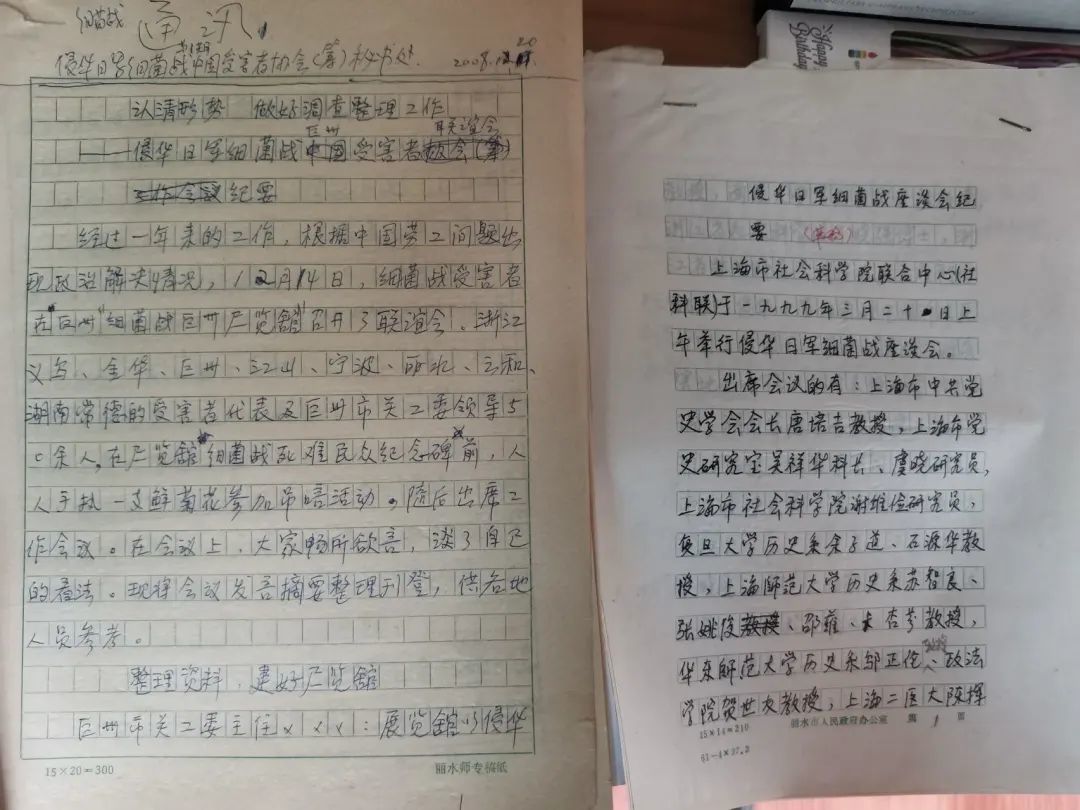 细菌战
通讯
侵华日军细菌战中国受害者协会(筹)秘书处. 2008.
认清形势 做好调查整理工作
巨州 联谊会
——侵华日军细菌战中国受害者协会(筹)
工作会议纪要
经过一年来的工作,根据中国劳工问题出
现政治解决情况,12月14日,细菌战受害者
在巨州"细菌战巨州尸览舘"召开了联谊会。浙江
义乌、金华、巨州、江山、宁波、丽水、云和、
湖南常德的受害者代表及巨州市关工委领导5
0余人,在尸览舘细菌战死难民众纪念碑前,人
人手执一支鲜菊花参加吊唁活动。随后出席工
作会议。在会议上,大家畅所欲言,谈了自己
的看法。现将会议发言摘要整理刊登,供各地
人员参考。
整理资料,建好尸览舘
巨州市关工委主任xxx:展览舘以侵华
15×20=300 丽水师专稿纸
Happy Birthday
侵华日军细菌战座谈会纪
要(草稿)
上海市社会科学院联合中心(社
科联)于一九九九年三月二十日上
午举行侵华日军细菌战座谈会。
出席会议的有:上海市中共党
史学会会长唐培吉教授,上海市党
史研究室吴祥华科长、虞晓研究员,
上海市社会科学院谢维俭研究员,
复旦大学历史系余子道、石源华教
授,上海师范大学历史系苏智良、
张姚俊教授、邵雍、朱杏芬教授,
华东师范大学历史系邹正伦教授、政法
学院贺世友教授,上海二医大陈挥
15×14=210 丽水市人民政府办公室 第 1 页
61-4×37.3